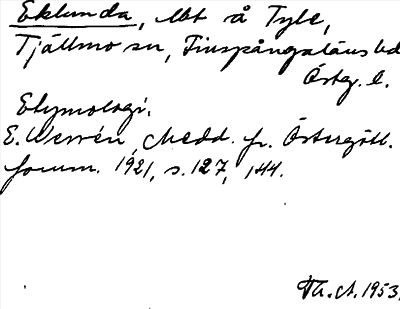 Eklunda, lht å Tyle,
Tjällmo sn, Finspångaläns hd
Österg. l.
Etymologi.
E. Wessén, Medd. fr. Östergötl.
fornm. 1921, s. 127, 144.
1953.